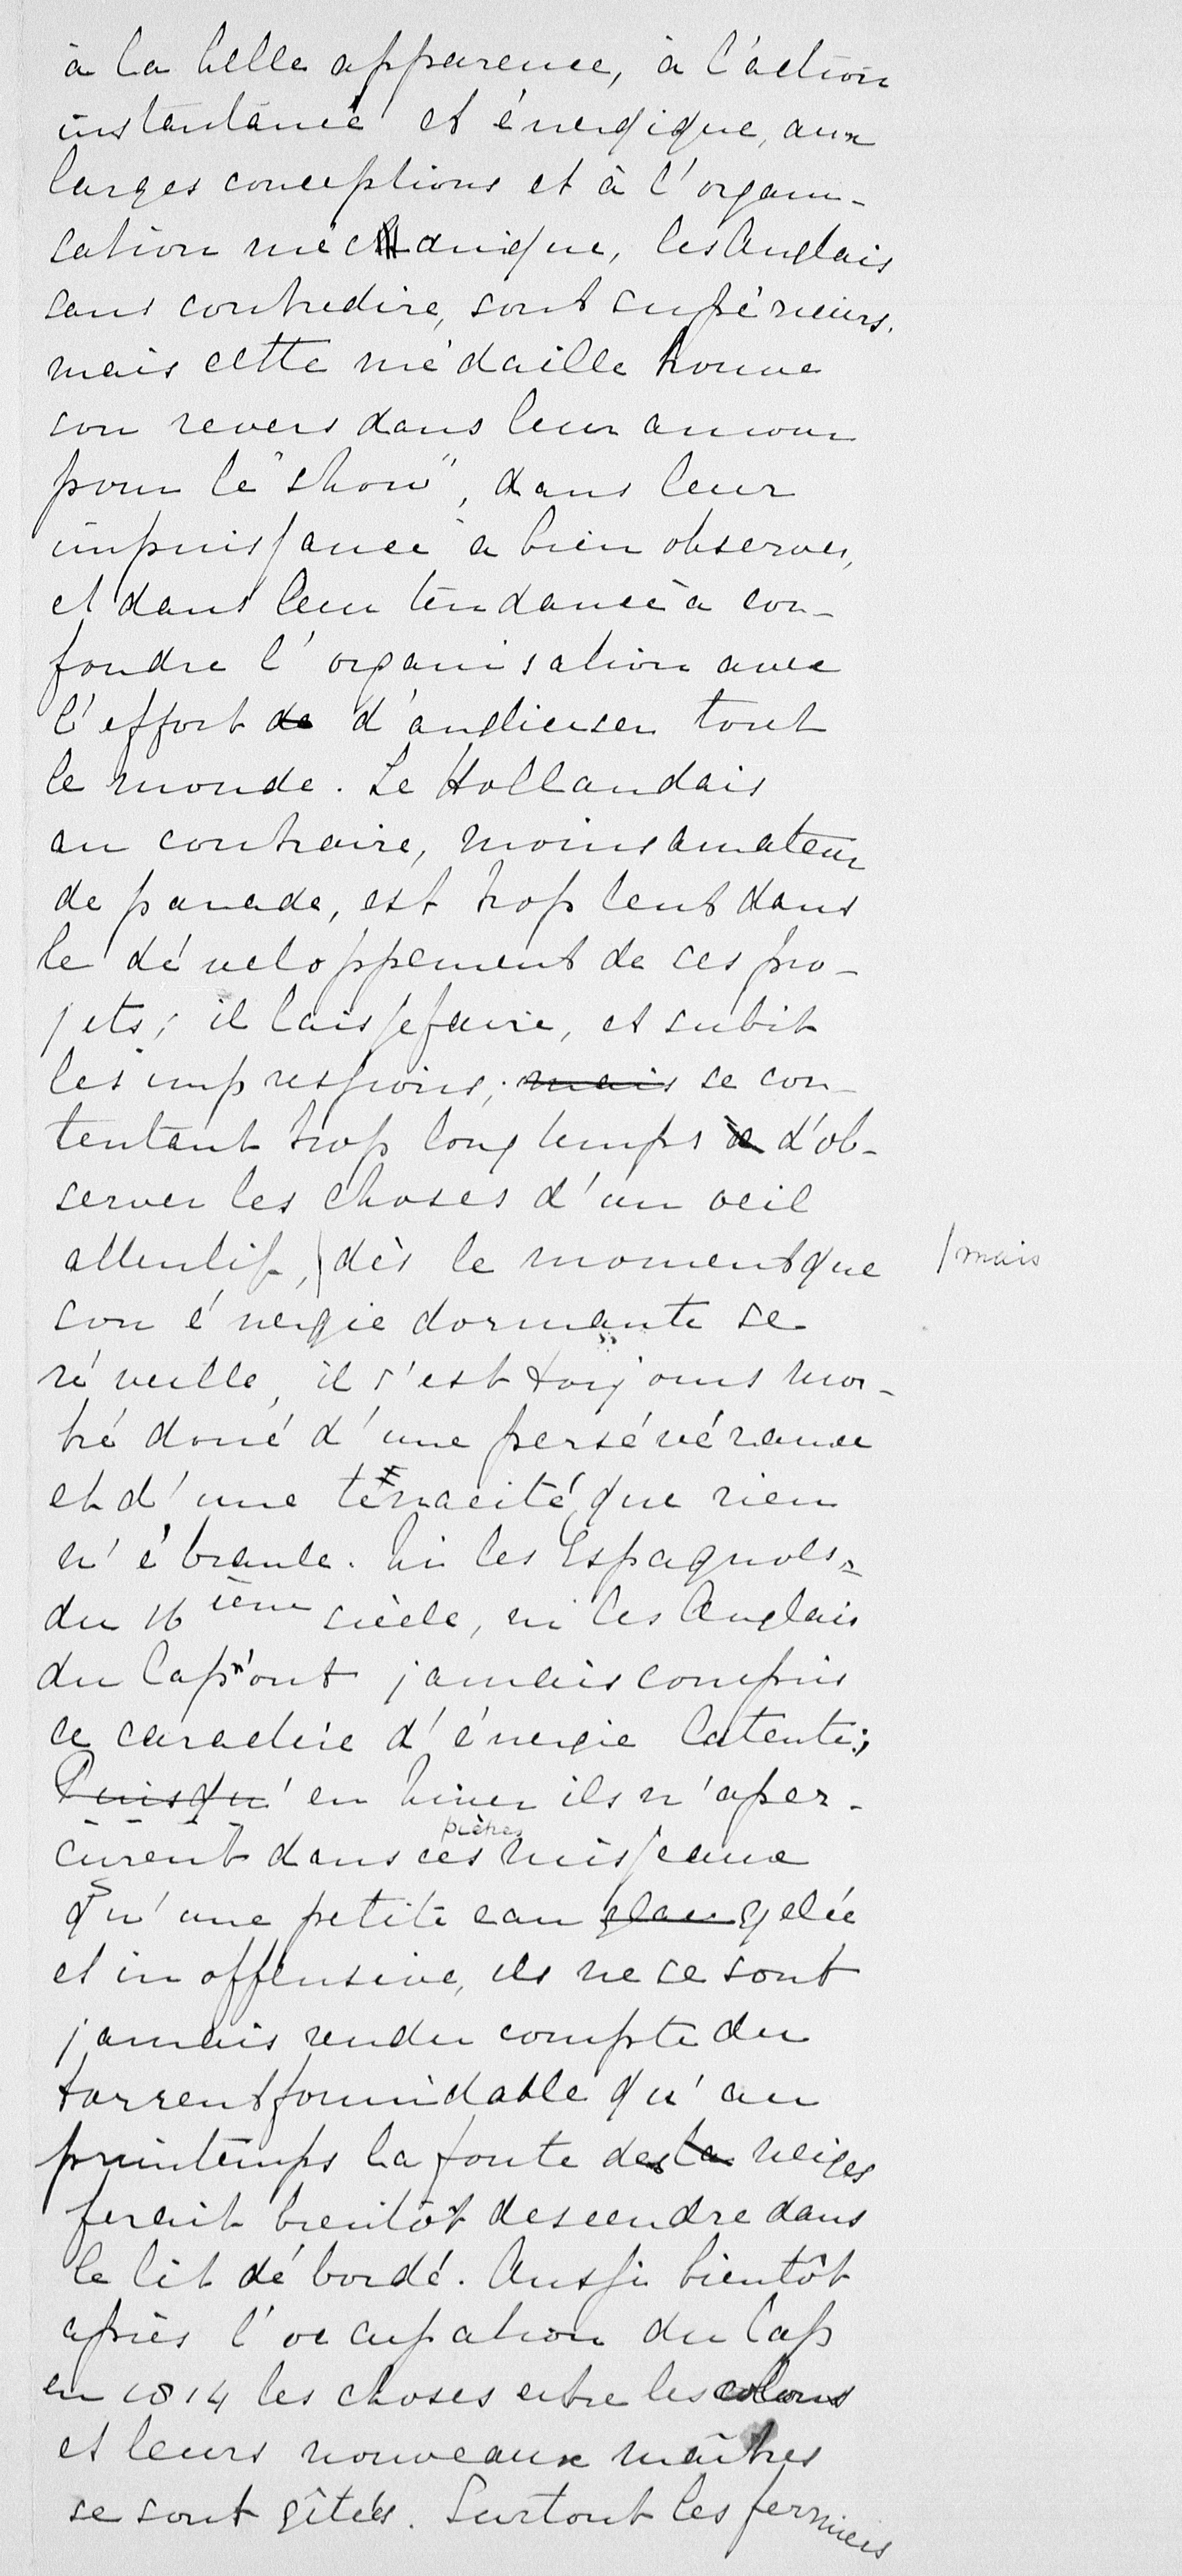 à la belle apparence, à l'action
instantanée et énergique, aux
larges conceptions et à l'organi-
sation mécanique, les Anglais
sans contredire, sont supérieurs.
mais cette médaille trouve
son revers dans leur amour
pour le "show", dans leur
impuissance à bien observer,
et dans leur tendance à con-
fondre l'organisation avec
l'effort de d'angliciser tout
le monde. Le Hollandais
au contraire, moins amateur
de parade, est trop lent dans
le développement de ces pro-
jets; il laisse faire, et subit
les impressions; mais se con-
tentant trop longtemps à d'ob-
server les choses d'un oeil
attentif, dès le moment que /mais
son énergie dormante se
réveille, il s'est toujours mon-
tré doué d'une persévérance
et d'une ténacité que rien
n'ébranle. Ni les Espagnols
du 16 ième siècle, ni les Anglais
du Cap n'ont jamais compris
ce caractère d'énergie latente;
Puisqu' en hiver ils n'aper-
çurent dans ces piètres ruisseaux
qu'une petite eau glau gelée
et inoffensive, ils ne se sont
jamais rendu compte du
torrent formidable qu'au
printemps la fonte des la neiges
ferait bientôt descendre dans
le lit débordé. Aussi bientôt
après l'occupation du Cap
en 1814 les choses entre les colons
et leurs nouveaux maîtres
se sont gîtés. Surtout les fermiers